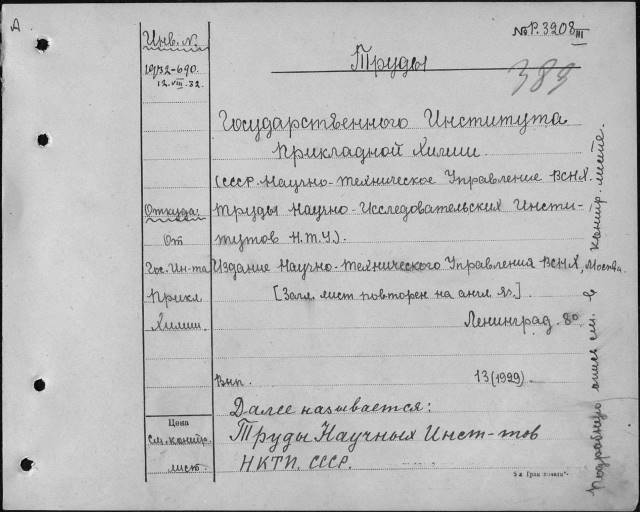 А
№Р.3208 III
389
Инв. №.
1932-690.
12.VIII-32.
Труды
Государственного Института
Прикладной Химии
(СССР. Научно-техническое Управление ВСНХ.
Труды Научно-Исследовательских Инсти-
тутов Н.Т.У.).
Издание Научно-технического Управления ВСНХ, Москва.
[Загл. лист повторен на англ. яз.].
Ленинград. 8°
Вып. 13 (1929).
Далее называется:
Труды Научных Инст-тов
НКТП. СССР.
Откуда:
От
Гос. Ин-та
Прикл
Химии.
Цена
См. контр.
лист.
Подробную опись см. в контр. листе.